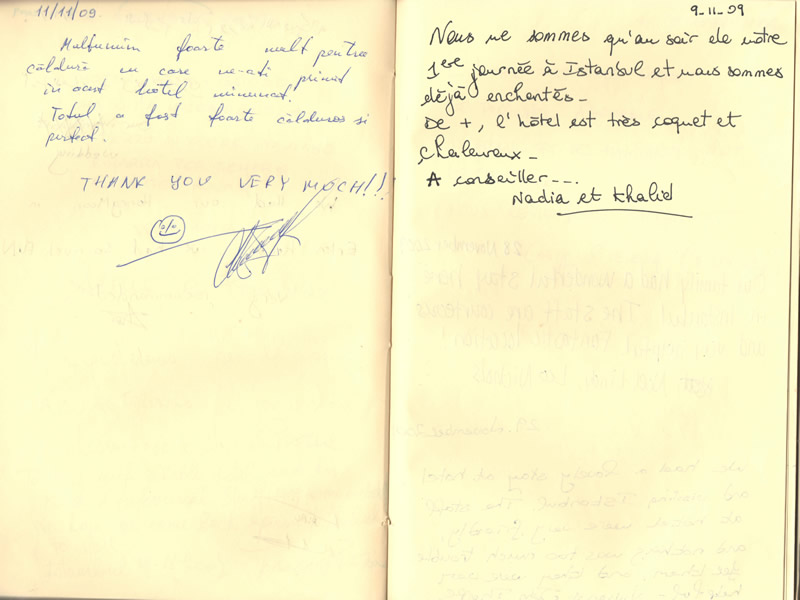 11/11/09
Multumim foarte mult pentru
căldura cu care ne-ati primit
în acest hotel minunat.
Totul a fost foarte călduros si
perfect.
THANK YOU VERY MOCH!!
9-11-09
Nous ne sommes qu'au soir de notre
1ere journée à Istanbul et nous sommes
déjà enchantés-
De +, l'hôtel est très coquet et
chaleureux-
A conseiller---
Nadia et Khalid